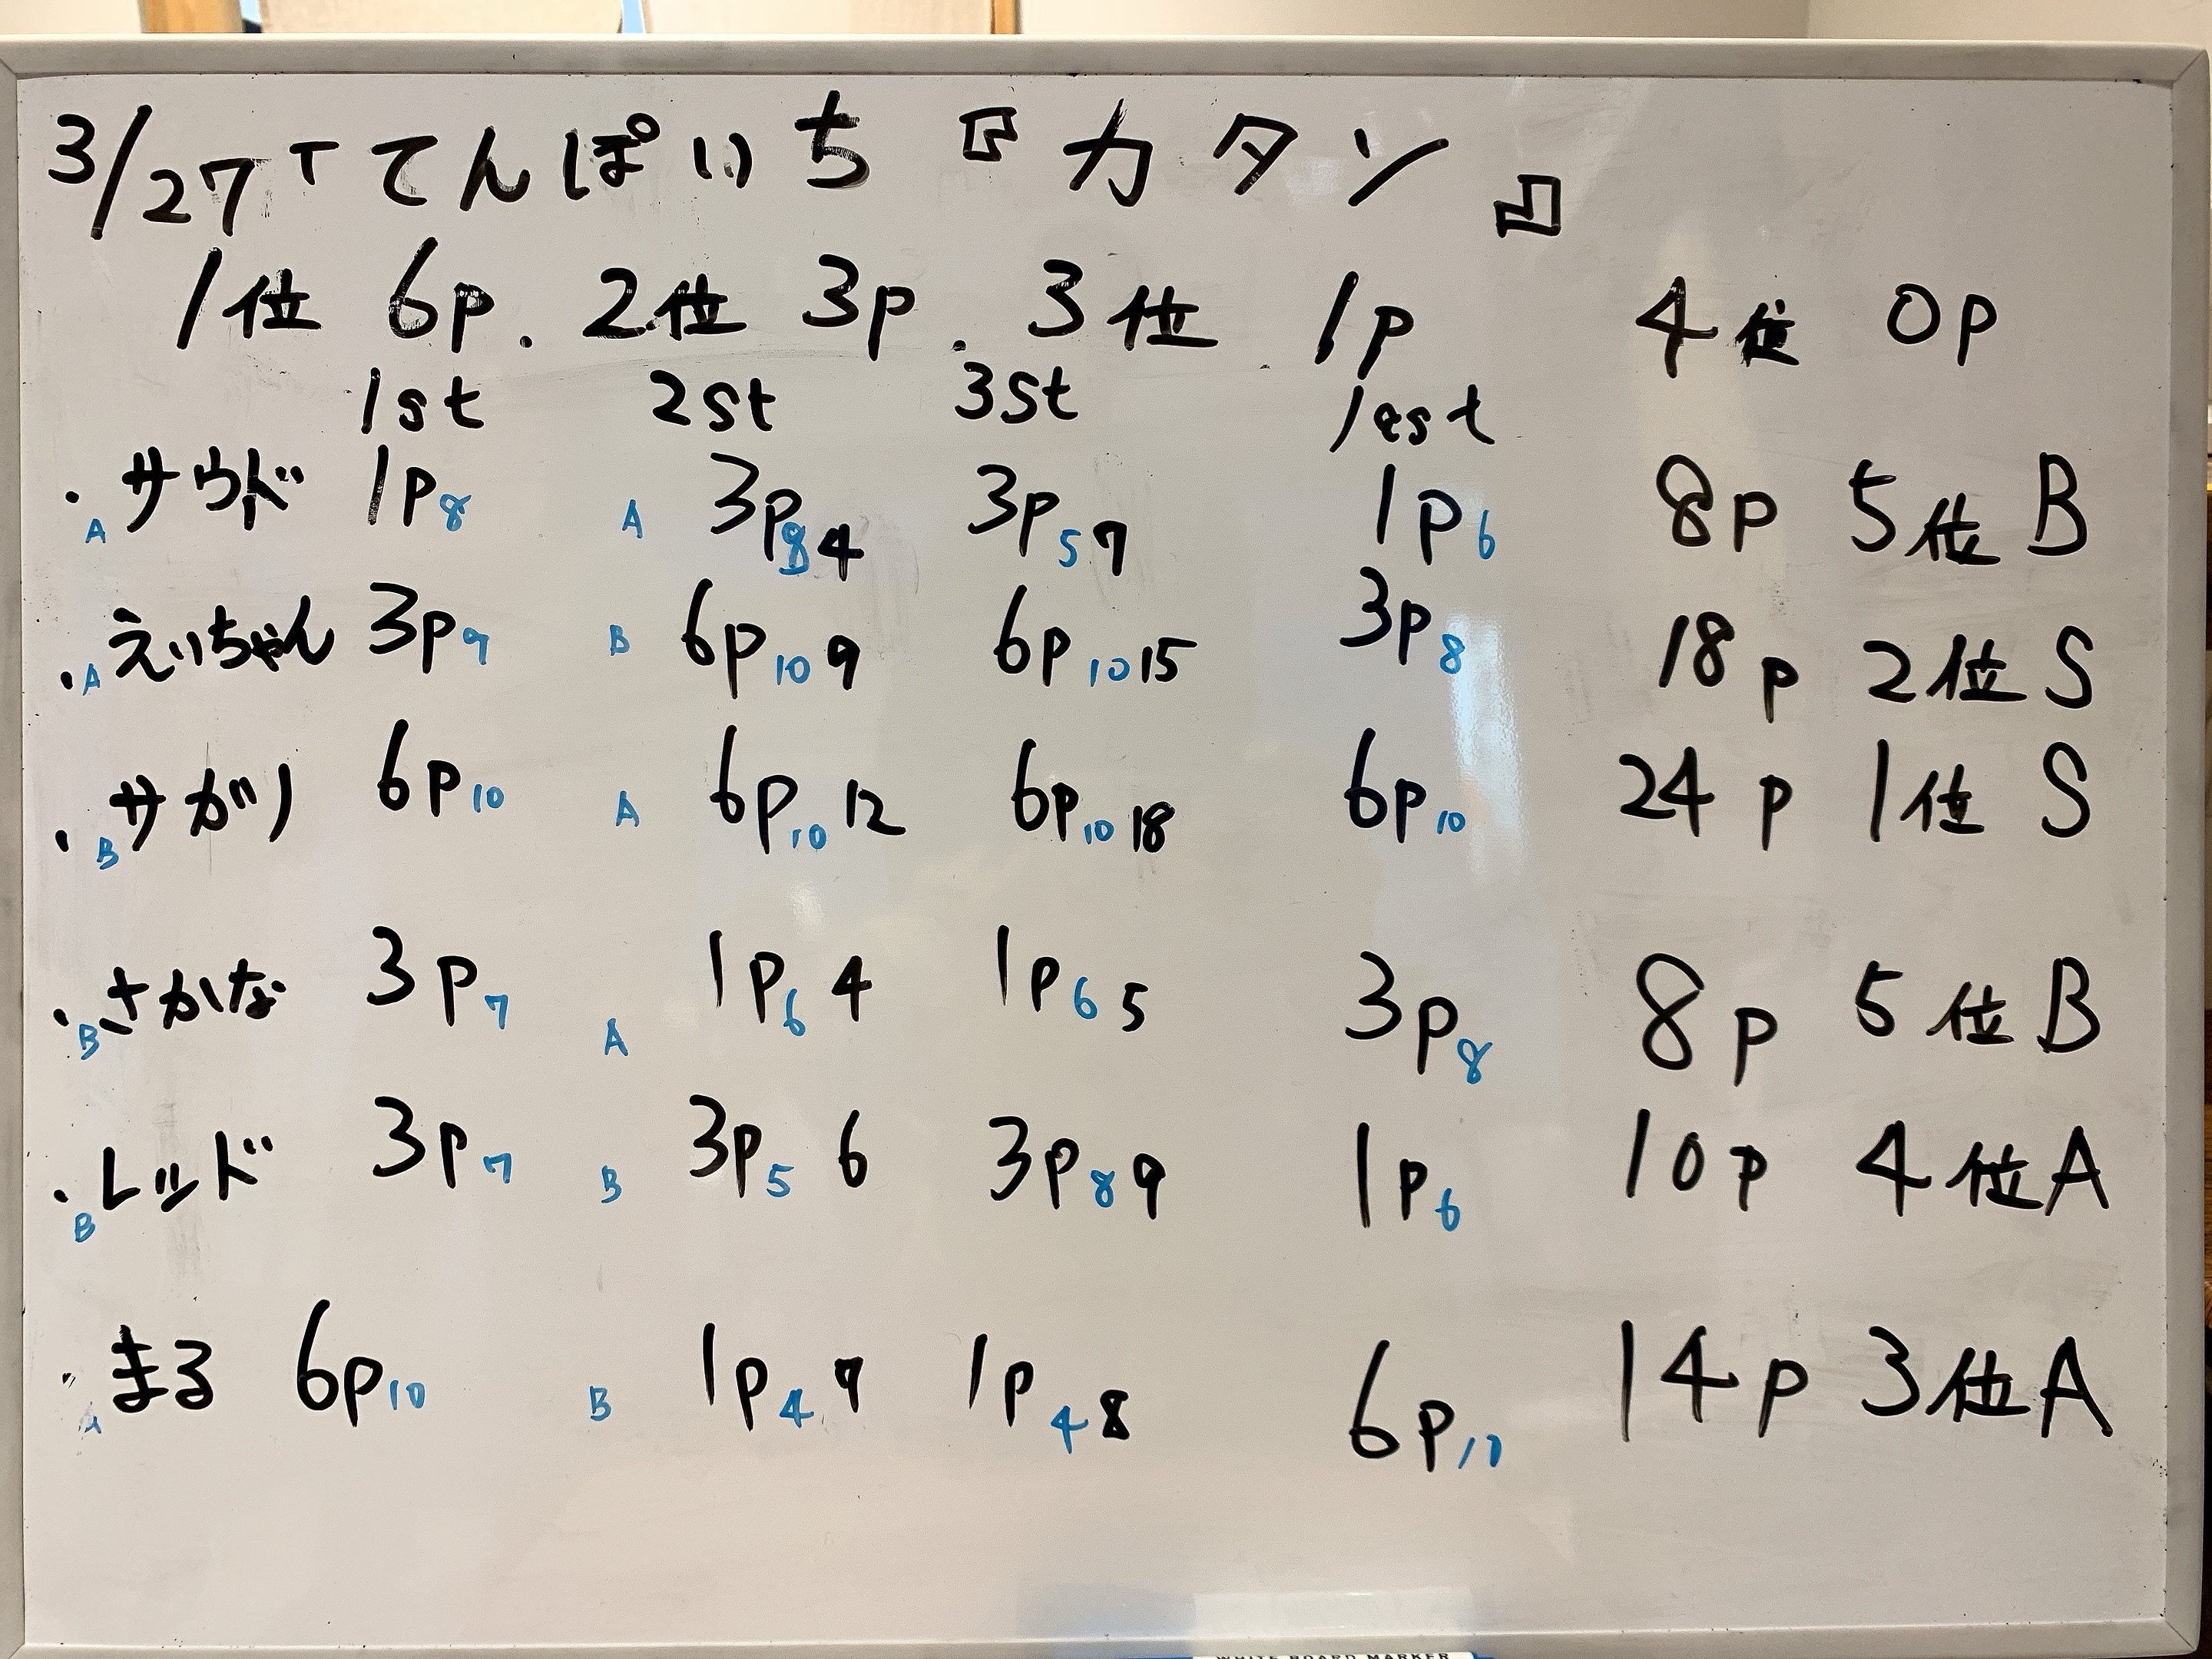 3/27「てんぱいち『カタン』
1位 6p. 2位 3p. 3位 1p 4位 0p
1st 2st 3st last
・A サウド 1p8 A 3p84 3p57 1p6 8p 5位 B
・A えいちゃん 3p9 B 6p10 9 6p10 15 3p8 18p 2位 S
・B サガリ 6p10 A 6p10 12 6p10 18 6p10 24p 1位 S
・B さかな 3p7 A 1p6 4 1p6 5 3p8 8p 5位 B
・B レッド 3p7 B 3p5 6 3p8 9 1p6 10p 4位 A
・A まる 6p10 B 1p4 7 1p4 8 6p10 14p 3位 A
WHITE BOARD MARKER